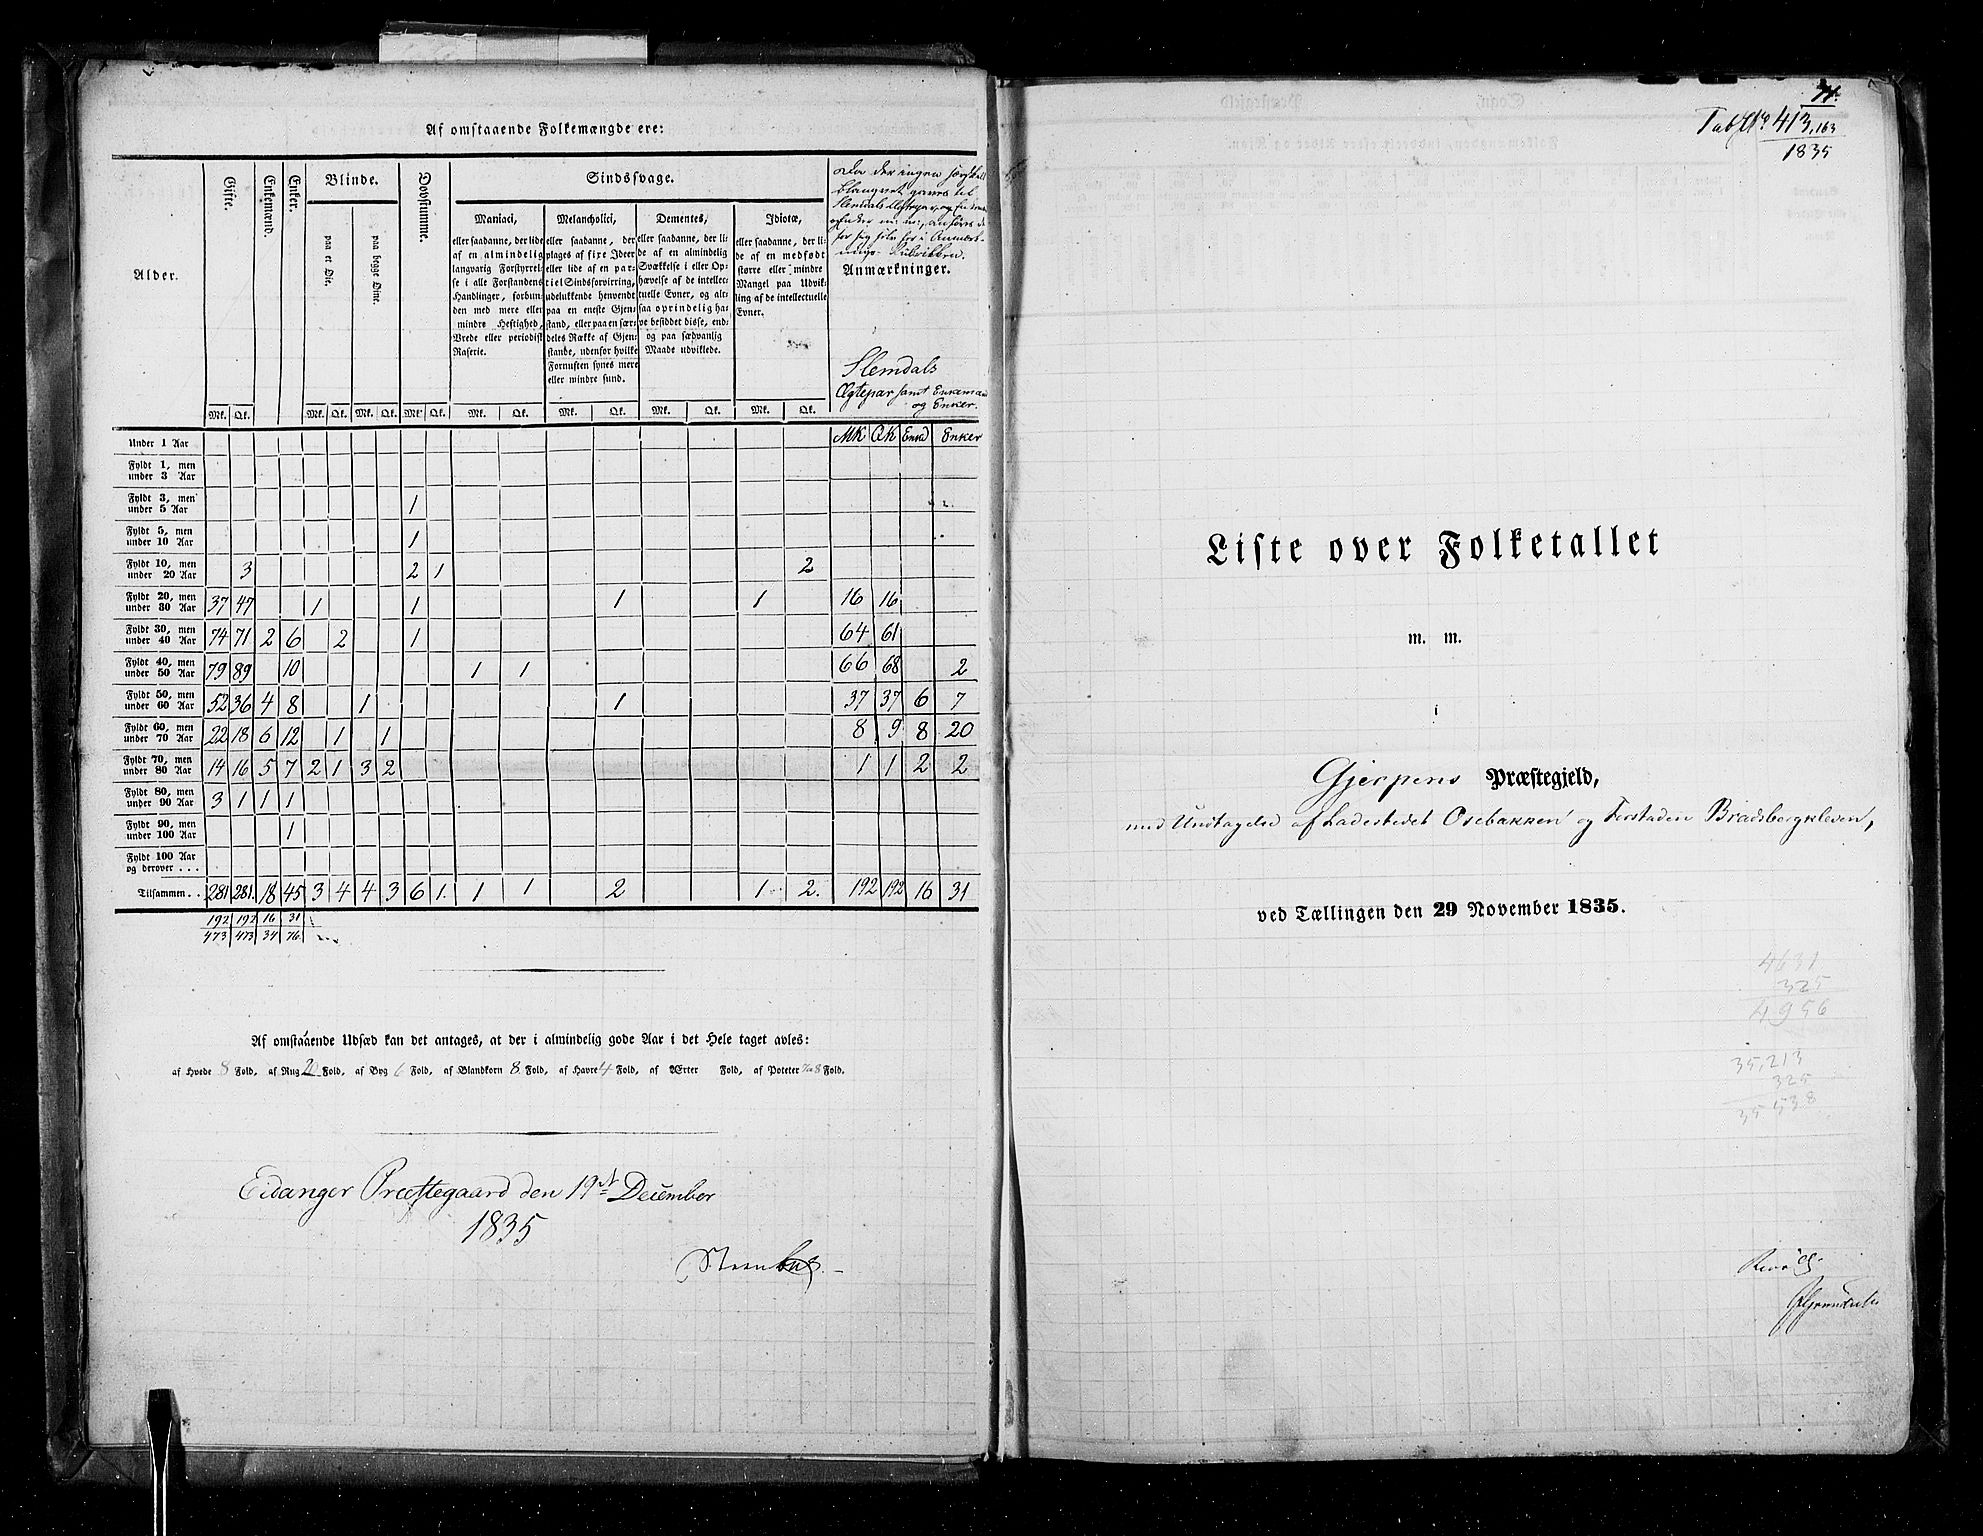 Af omstaaende Folkemængde ere:
Alder.
Gifte.
Enkemænd.
Enker.
Blinde.
paa et Øie.
paa begge Øine.
Døvstumme.
Sindssvage.
Maniaci,
eller saadanne, der lide
af en almindelig
langvarig Forstyrrel-
se i alle Forstandens
Handlinger, forbun-
den med mere eller
mindre Heftighed,
Vrede eller periodisk
Raserie.
Melancholici,
eller saadanne, der
plages af fixe Ideer
eller lide af en par-
tiel Sindsforvirring,
udelukkende henvendt
paa en eneste Gjen-
stand, eller paa en sær-
deles Række af Gjen-
stande, udenfor hvilke
Fornuften synes mere
eller mindre sund.
Dementes,
eller saadanne, der li-
de af en almindelig
Svækkelse i eller Op-
hævelse af de intellec-
tuelle Evner, og alt-
saa oprindelig ha-
ve besiddet disse, end-
og paa sædvanlig
Maade udviklede.
Idiotæ,
eller saadanne, der li-
de af en medfødt
større eller mindre
Mangel paa Udvik-
ling af de intellectuelle
Evner.
Da der ingen særskilt
Blanqvet gaves til
Slemdals
for sig selv her i Anmærk-
nings-Rubrikken.
Anmærkninger.
Slemdals
Ægtepar samt Enkemænd
og Enker.
Mk. Qk. Mk. Qk. Mk. Qk. Mk. Qk. Mk. Qk. Mk. Qk. Mk. Qk. Mk. Qk.
Under 1 Aar MK QK Enkd Enker
Fyldt 1, men
under 3 Aar
Fyldt 3, men
under 5 Aar 1
Fyldt 5, men
under 10 Aar 1
Fyldt 10, men
under 20 Aar 3 2 1 2
Fyldt 20, men
under 30 Aar 37 47 1 1 1 1 16 16
Fyldt 30, men
under 40 Aar 74 71 2 6 2 1 64 61
Fyldt 40, men
under 50 Aar 79 89 10 1 1 66 68 2
Fyldt 50, men
under 60 Aar 52 36 4 8 1 1 37 37 6 7
Fyldt 60, men
under 70 Aar 22 18 6 12 1 1 8 9 8 20
Fyldt 70, men
under 80 Aar 14 16 5 7 2 1 3 2 1 1 2 2
Fyldt 80, men
under 90 Aar 3 1 1 1
Fyldt 90, men
under 100 Aar 1
Fyldt 100 Aar
og derover . . .
Tilsammen . . 281 281. 18 45 3 4 4 3 6 1. 1 1 2 1 2. 192 192 16 31
192 192 16 31
473 473 34 76
Af omstaaende Udsæd kan det antages, at der i almindelig gode Aar i det Hele taget avles:
af Hvede 8 Fold, af Rug 20 Fold, af Byg 6 Fold, af Blandkorn 8 Fold, af Havre 4 Fold, af Ærter Fold, af Poteter 7 a 8 Fold.
Eidanger Præstegaard den 19de December
1835
71.
Tab. No 413,163
1835
Liste over Folketallet
m. m.
i
Gjerpens Præstegjeld,
med Undtagelse af Ladestedet Osebakken og Forstaden Bradsbergkleven,
ved Tællingen den 29 November 1835.
4631
325
4956
35,213
325
35 538